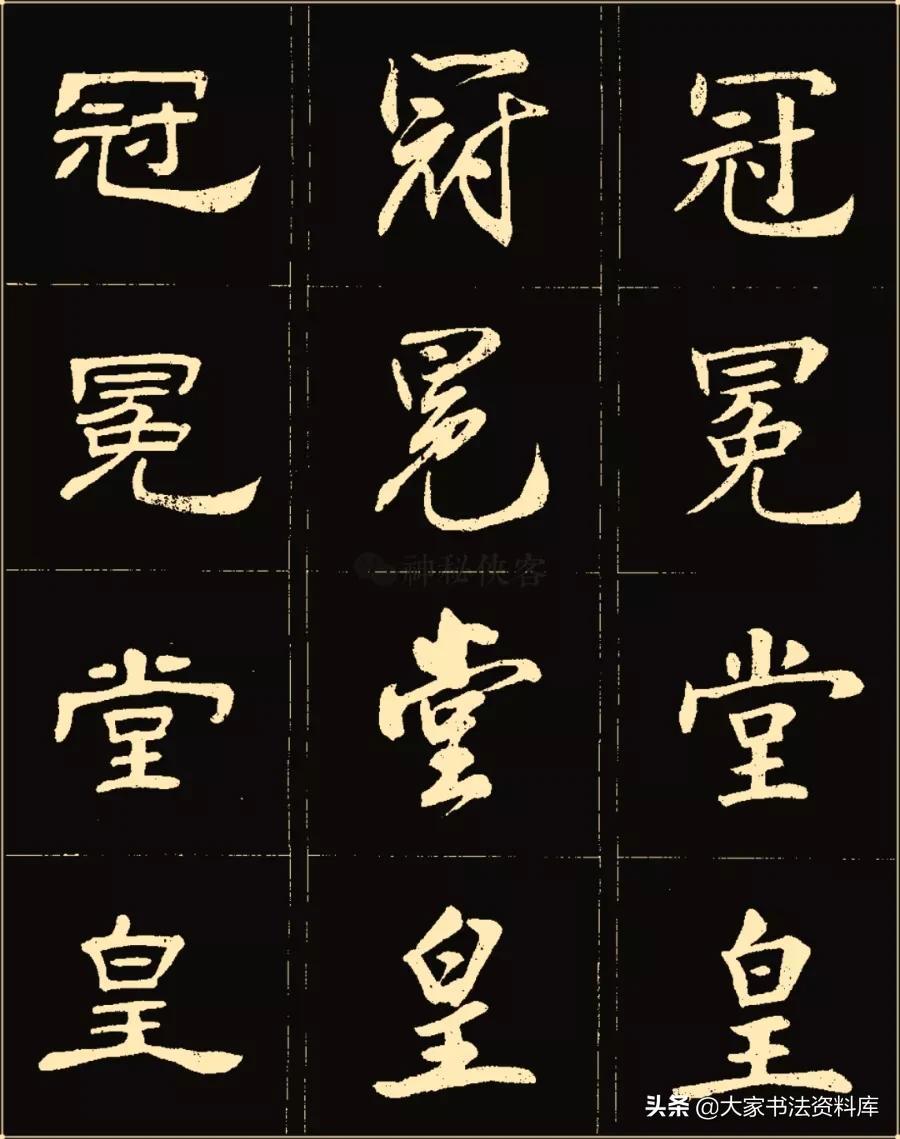 冠 冠 冠
冕 冕 冕
神秘侠客
堂 堂 堂
皇 皇 皇
头条 @大家书法资料库